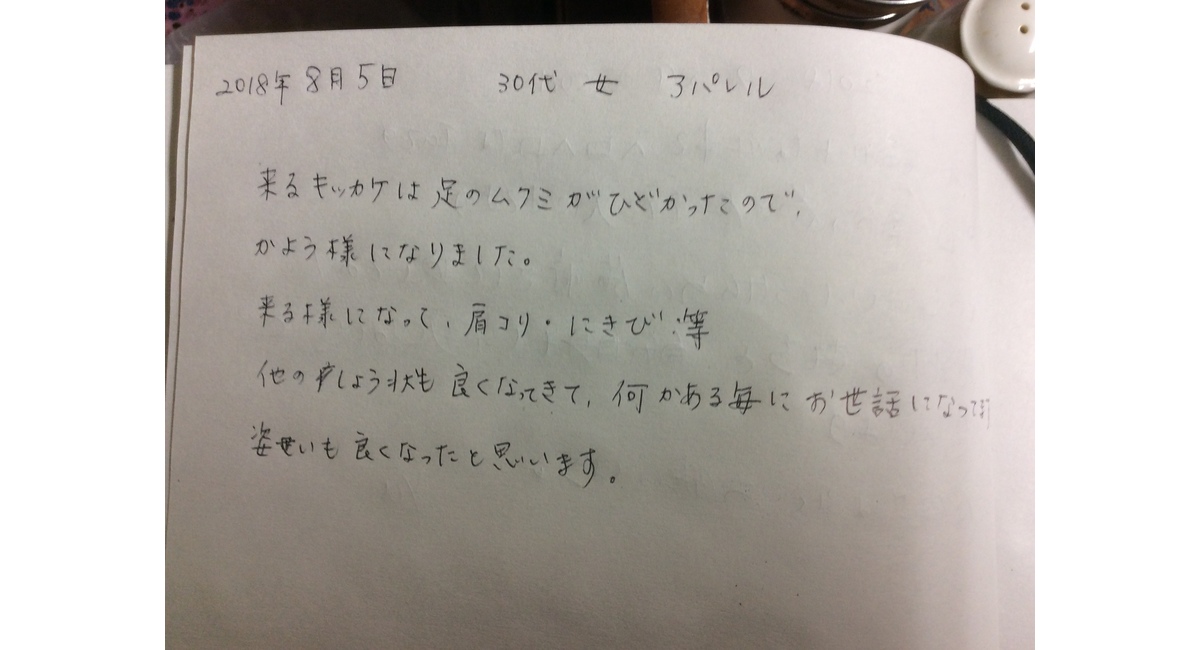 2018年 8月5日 30代 女 アパレル
来るキッカケは足のムクミがひどかったので、
かよう様になりました。
来る様になって、肩コリ・にきび等
他の しょう状も良くなってきて、何かある毎にお世話になって
姿せいも良くなったと思います。